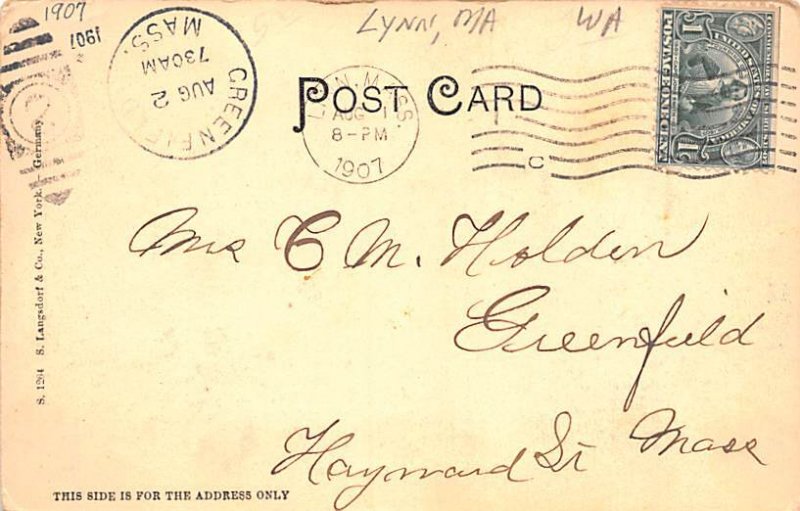 1907
LYNN, MA WA
1907
GREENFIELD
MASS.
AUG 2
730AM
POST CARD
LYNN, MASS.
AUG 1
8-PM
1907
C
UNITED STATES OF AMERICA
POSTAGE ONE CENT
1 1
Mrs C. M. Holden
Greenfield
Hayward St Mass
S. 1264 S. Langsdorf & Co., New York. – Germany
THIS SIDE IS FOR THE ADDRESS ONLY